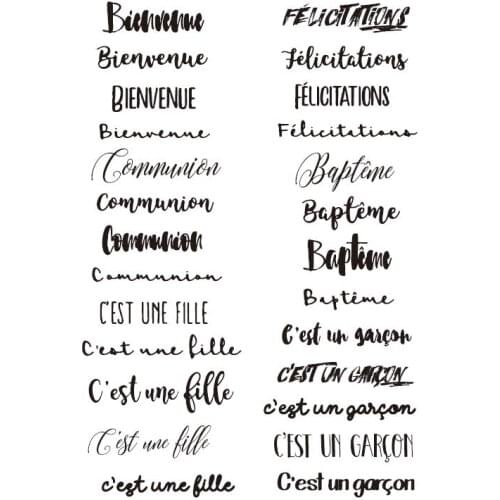 Bienvenue
Bienvenue
BIENVENUE
Bienvenue
Communion
Communion
Communion
Communion
C'EST UNE FILLE
C'est une fille
C'est une fille
C'est une fille
c'est une fille
FÉLICITATIONS
Félicitations
FÉLICITATIONS
Félicitations
Baptême
Baptême
Baptême
Baptême
C'est un garçon
C'EST UN GARÇON
c'est un garçon
C'EST UN GARÇON
C'est un garçon